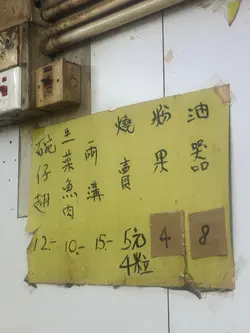 油器
8
粉果
4
燒賣
5元
4粒
兩溝
15.-
生菜魚肉
10.-
碗仔翅
12.-